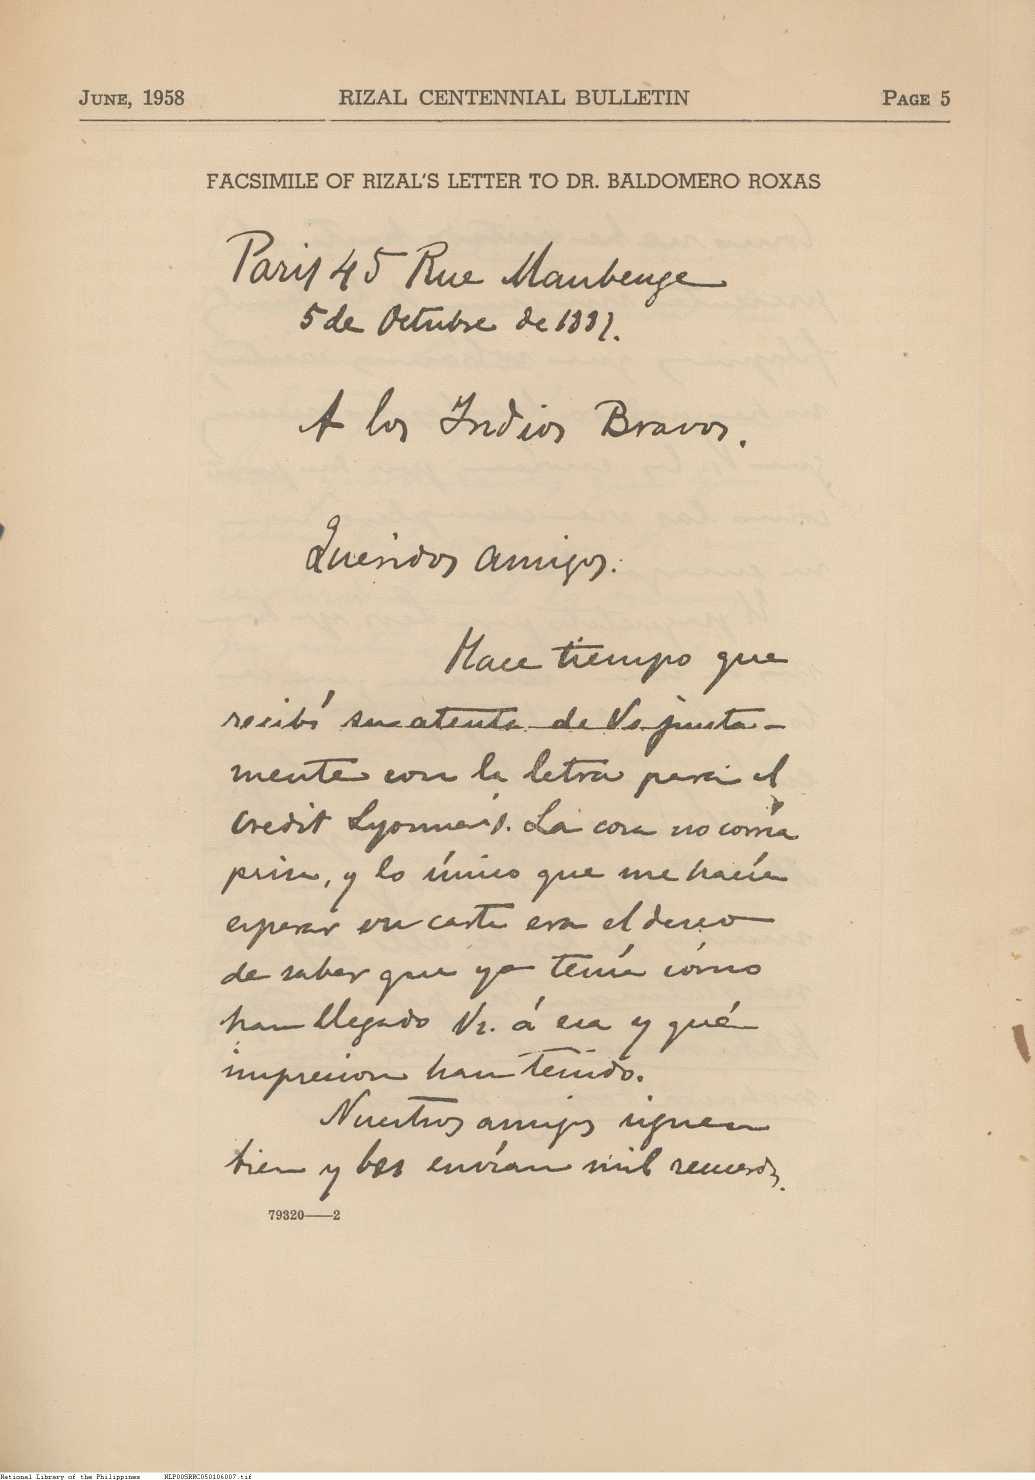 JUNE, 1958 RIZAL CENTENNIAL BULLETIN PAGE 5
FACSIMILE OF RIZAL'S LETTER TO DR. BALDOMERO ROXAS
Paris 45 Rue Maubeuge
5 de Octubre de
A los Indios Bravos.
Queridos amigos:
Hace tiempo que
recibí su atenta de Vs junta-
mente con la letra para el
Credit Lyonnais. La cosa no corría
prisa, y lo único que me hacía
esperar su carta era el deseo
de saber que ya tenía cómo
han llegado Vs. á esa y qué
impresion han tenido.
Nuestros amigos siguen
bien y les envían mil recuerdos.
79320——2
National Library of the Philippines NLP00SRRC050106007.tif